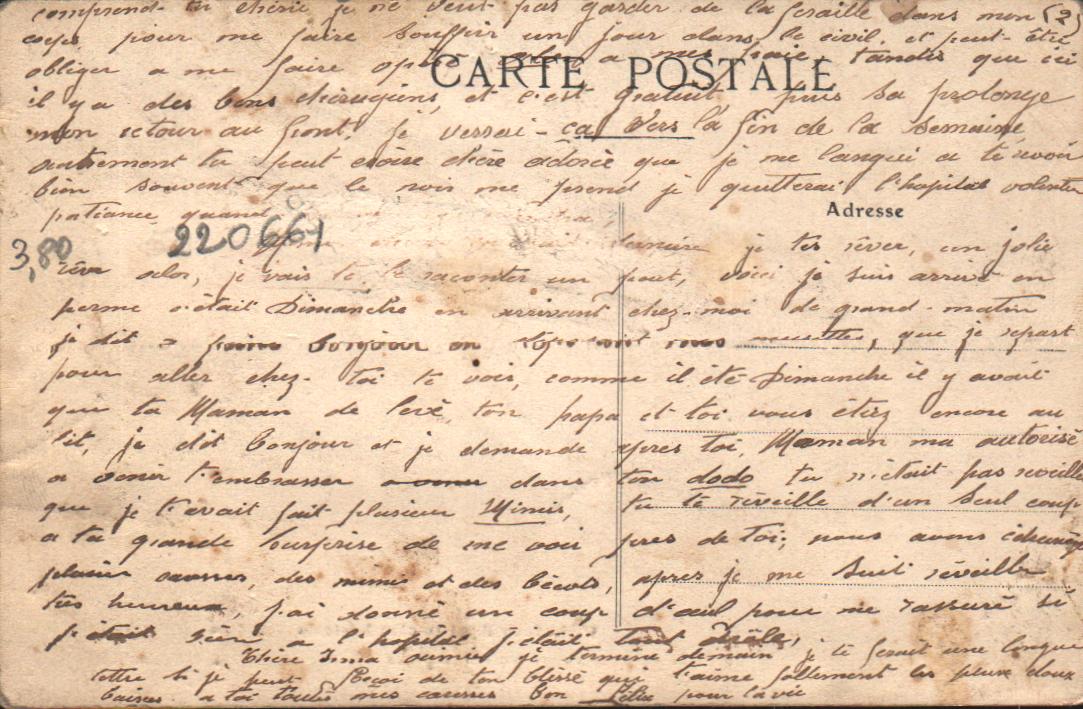 comprend-tu chérie je ne veut pas garder de la feraille dans mon (2)
corps pour me faire souffrir un jour dans le civil et peut-être
obliger a me faire opéré alor a mes frais, tandis que ici
CARTE POSTALE
il y a des bons chirugiens, et c'est gratuit, puis sa prolonge
mon retour au front, je verrai-ça vers la fin de la semaine
autrement tu peut croire chère adorée que je me langui a te revoir
bien souvent que le noir me prend je quitterai l'hopital volontier
patiance quand
Adresse
220661
3,80
dernière je tes rêver, un jolie
rêve alor, je vais te le raconter un peut, voici je suis arrivé en
perme s'était Dimanche en arrivant chez-moi de grand-matin
je dit bonjour musettes, que je repart
pour aller chez-toi te voir, comme il été Dimanche il y avait
que ta Maman de levé, ton papa et toi vous étiez encore au
lit, je dit bonjour et je demande apres toi, Maman ma autorisé
a venir t'embrasser dans ton dodo tu n'était pas reveille
que je t'avait fait plusieur Mimis, tu te réveille d'un seul coup
a ta grande surprise de me voir pres de toi; nous avons échangé
plusieur caresses, des mimis et des bécots, apres je me suit réveille
très heureux, j'ai donné un coup d'oeil pour me rassuré si
j'était bien a l'hopital j'était tout drole,
Chère Irma aimée je termine demain je te ferait une longue
lettre si je peut. Reçoi de ton blessé que t'aime follement les plus doux
baisers a toi toutes mes caresses ton Félix pour la vie